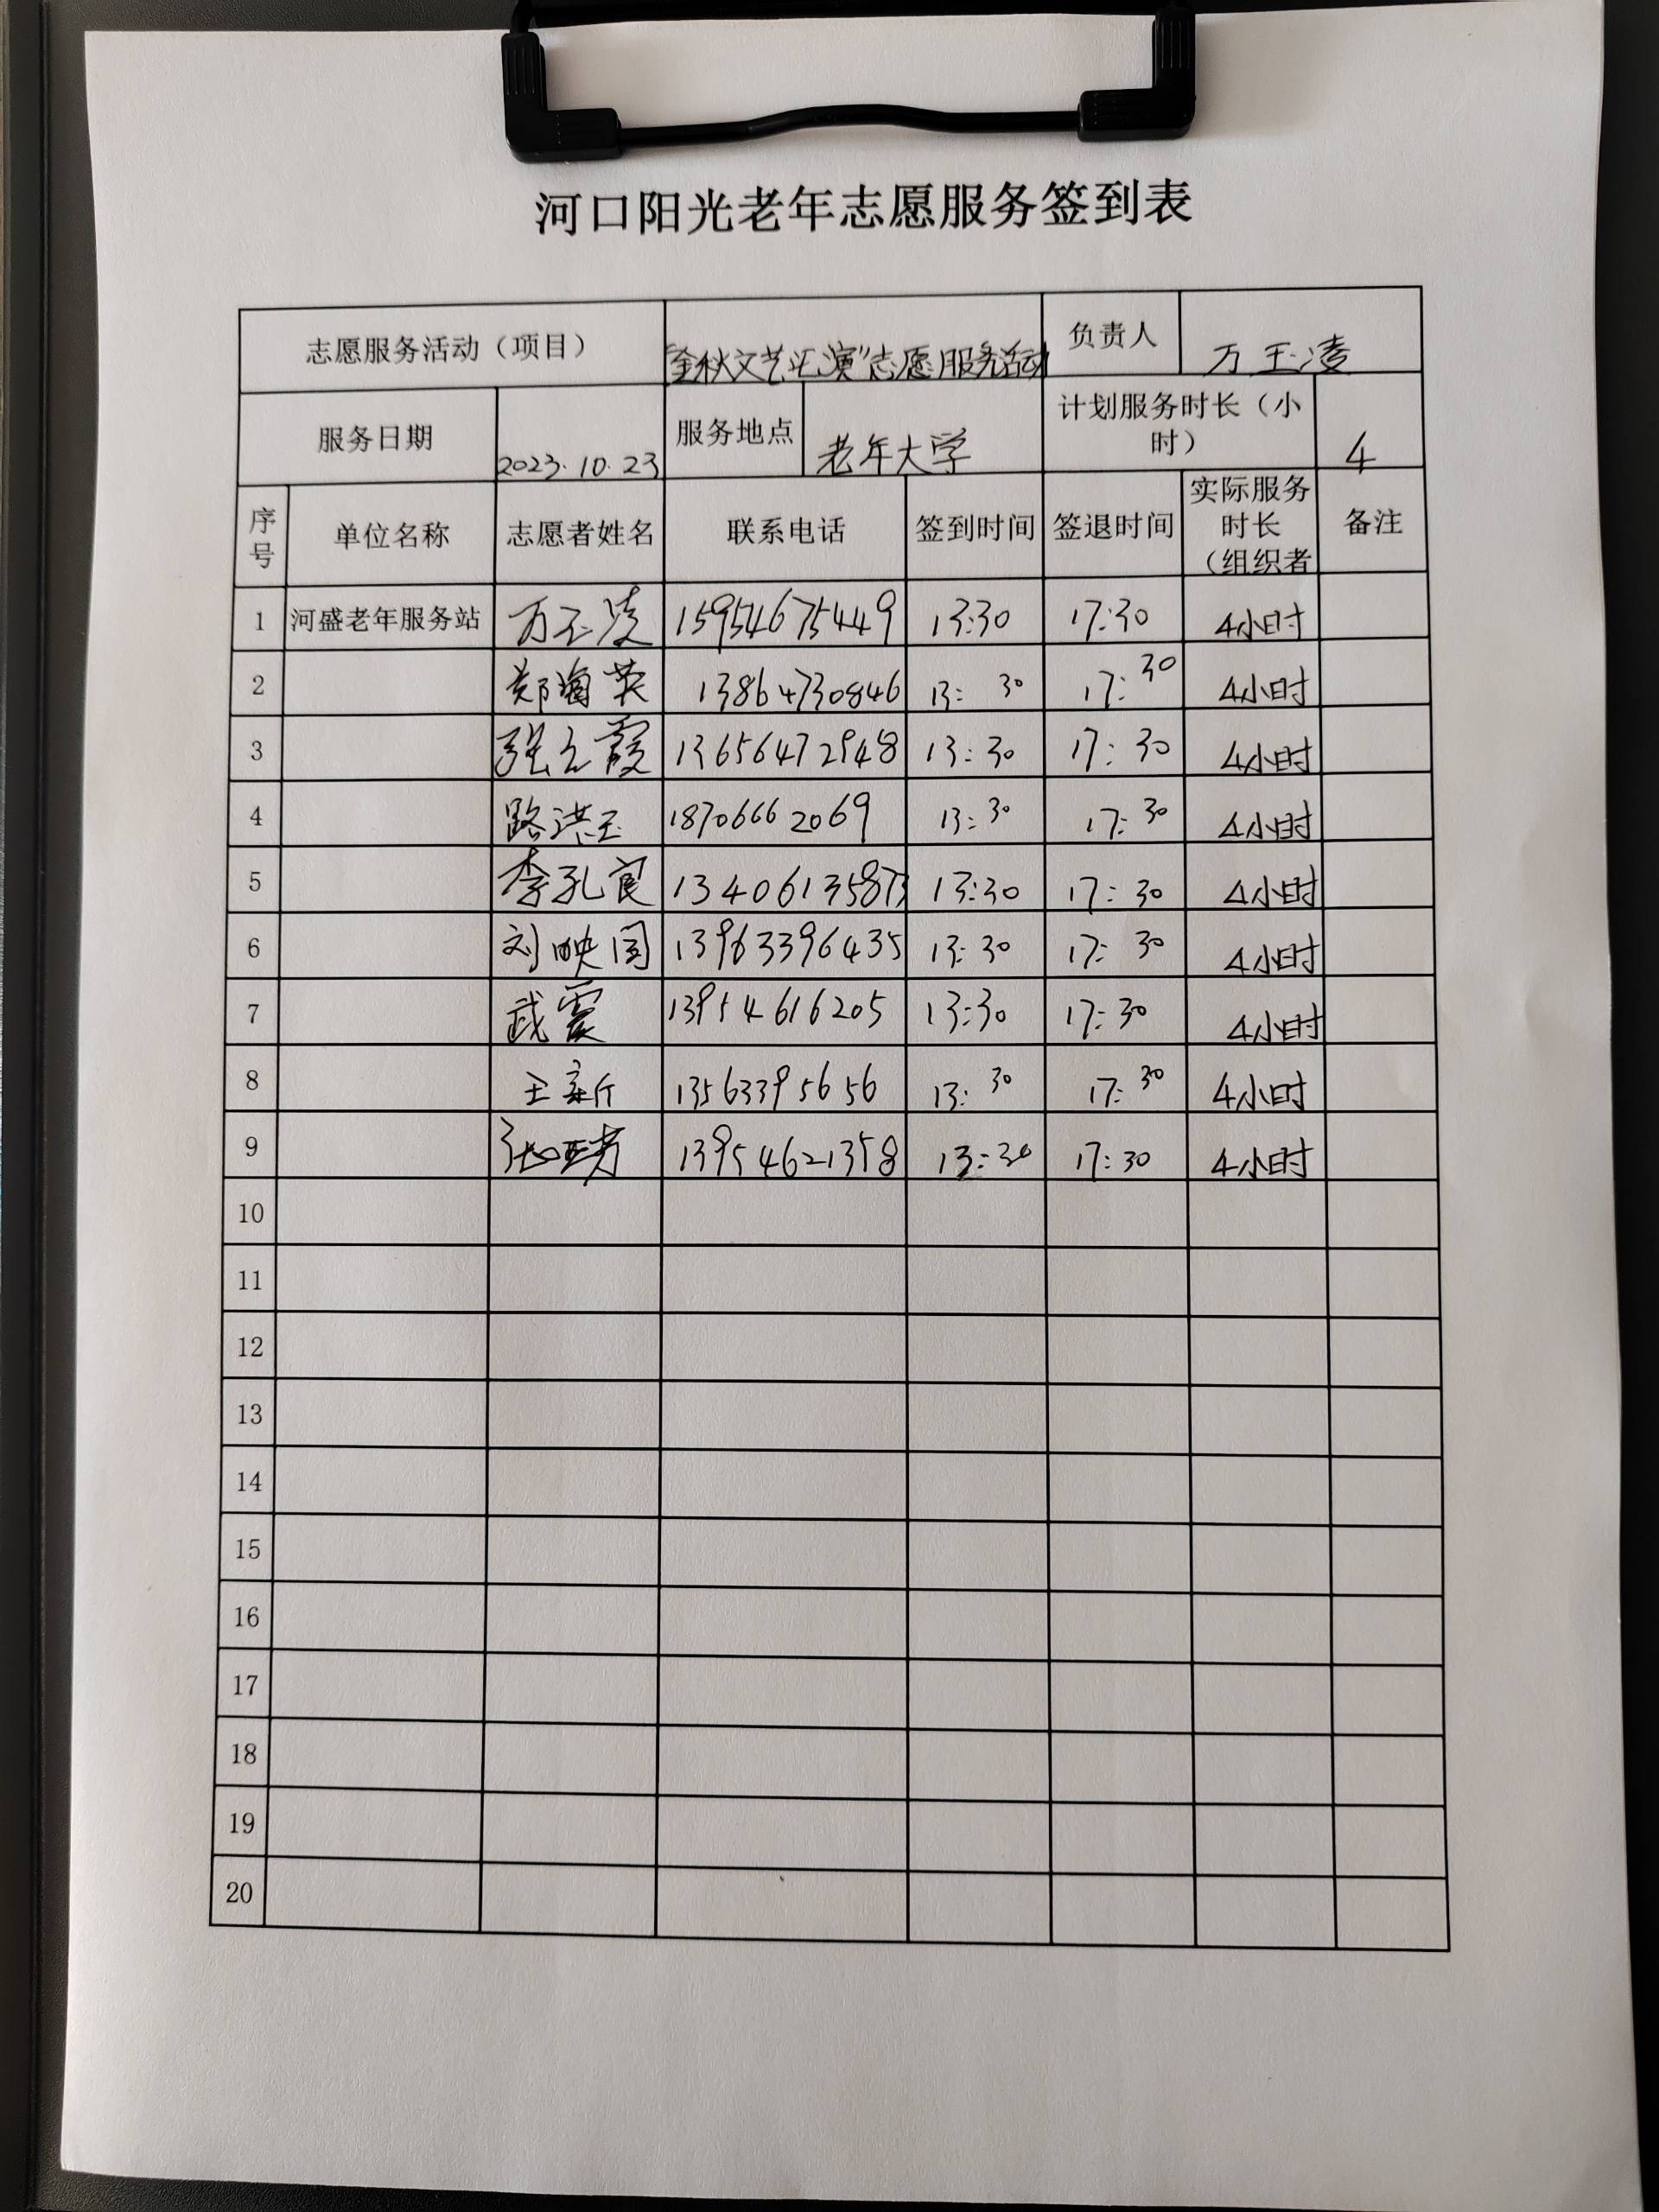 河口阳光老年志愿服务签到表
志愿服务活动（项目） "金秋文艺汇演"志愿服务活动 负责人 万玉凌
服务日期 2023.10.23 服务地点 老年大学 计划服务时长（小时） 4
序号 单位名称 志愿者姓名 联系电话 签到时间 签退时间 实际服务时长（组织者 备注
1 河盛老年服务站 万玉凌 15954675449 13:30 17:30 4小时
2 郑海英 13864730846 13:30 17:30 4小时
3 张云霞 13656472948 13:30 17:30 4小时
4 路洪玉 18706662069 13:30 17:30 4小时
5 李孔良 13406135873 13:30 17:30 4小时
6 刘映国 13963396435 13:30 17:30 4小时
7 武震 13954616205 13:30 17:30 4小时
8 王 13563395656 13:30 17:30 4小时
9 张 13954621358 13:30 17:30 4小时
10
11
12
13
14
15
16
17
18
19
20